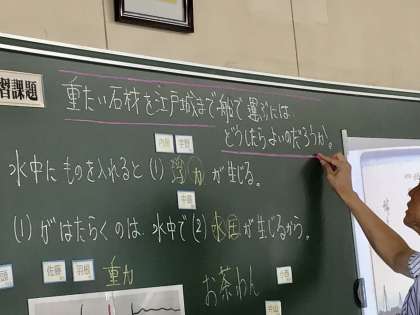 習課題
重たい石材を江戸城まで船で運ぶには、
どうしたらよいのだろうか。
水中にものを入れると(1)浮力が生じる。
(1)がはたらくのは、水中で(2)水圧が生じるから。
佐藤 羽根
重力
お茶わん